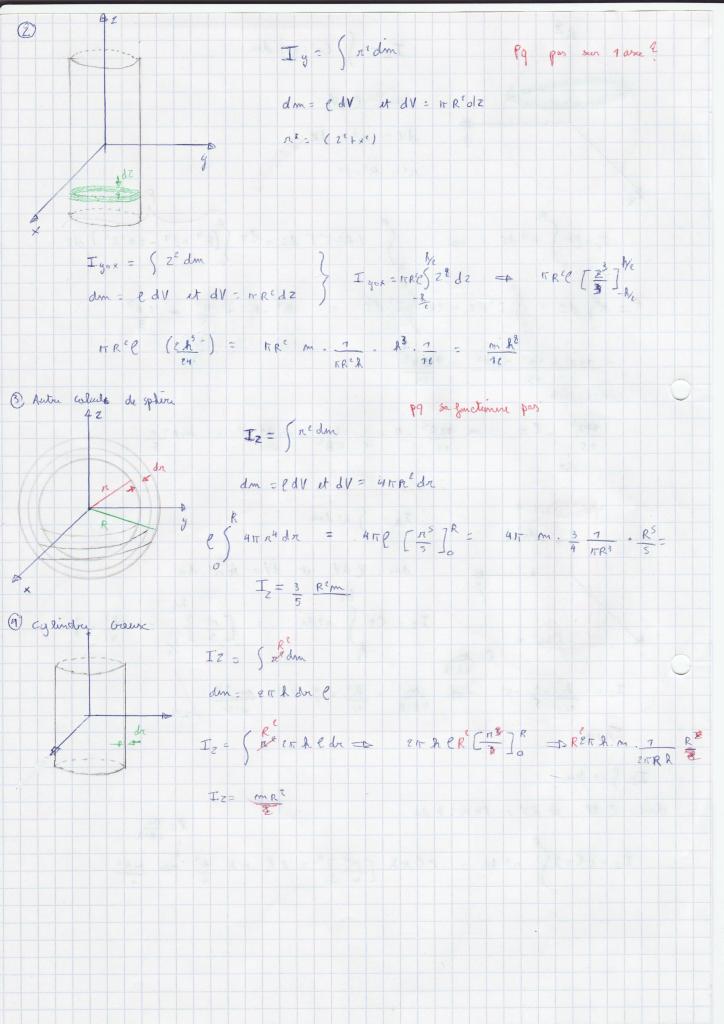 ② z
I_y = ∫ r² dm Pq pas sur 1 axe ?
dm = ρ dV et dV = π R² dz
r² = (z² + x²)
y
dz
x
I_yox = ∫ z² dm
dm = ρ dV et dV = π R² dz
I_yox = π R² ρ ∫_{-h/2}^{h/2} z² dz ⇒ π R² ρ [z³/3]_{-h/2}^{h/2}
π R² ρ (2h³/24) = π R² m · 1/(πR²h) · h³ · 1/12 = m h²/12
③ Autre calcul de sphère
Pq sa fonctionne pas
z
I_z = ∫ r² dm
dr
r
R
y
x
dm = ρ dV et dV = 4πR² dr
ρ ∫_0^R 4π r⁴ dr = 4πρ [r⁵/5]_0^R = 4π m · 3/4 1/(πR³) · R⁵/5 =
I_z = 3/5 R² m
④ Cylindre creux
Iz = ∫ R² dm
dm = 2π h dr ρ
dr
I_z = ∫ R² 2π h ρ dr ⇒ 2π h ρ R² [r]_0^R ⇒ R² 2π h · m · 1/(2πRh) R
Iz = mR²